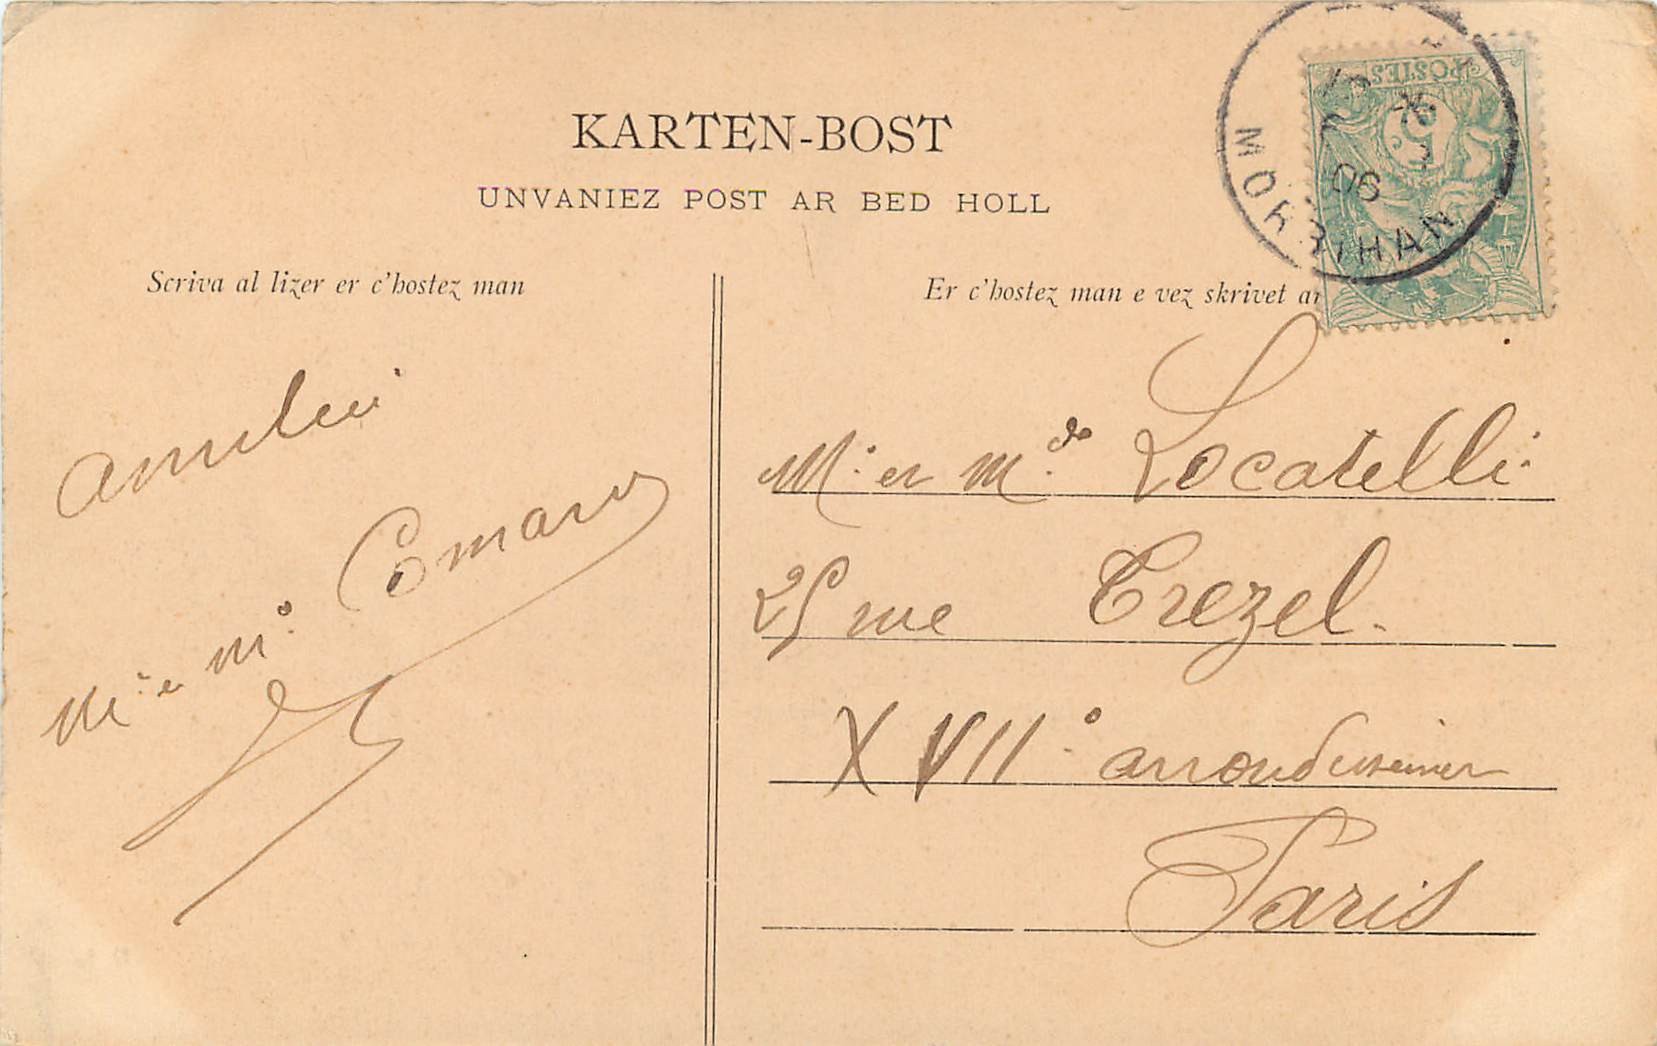 KARTEN-BOST
UNVANIEZ POST AR BED HOLL
Scriva al lizer er c'hostez man
Er c'hostez man e vez skrivet ar
POSTES
5
06
MORBIHAN
M. et M.
Mr et Mde Locatelli
25 rue Trezel.
XVIIe arrondissement
Paris